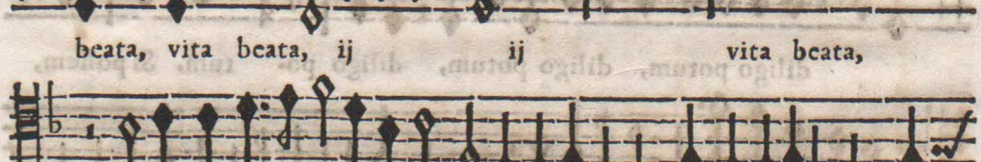 beata, vita beata, ij ij vita beata,